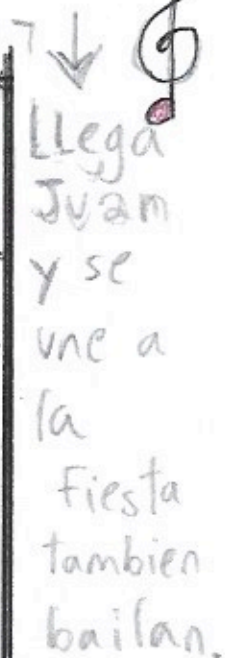 LLega
Juam
y se
une a
la
fiesta
tambien
bailan.